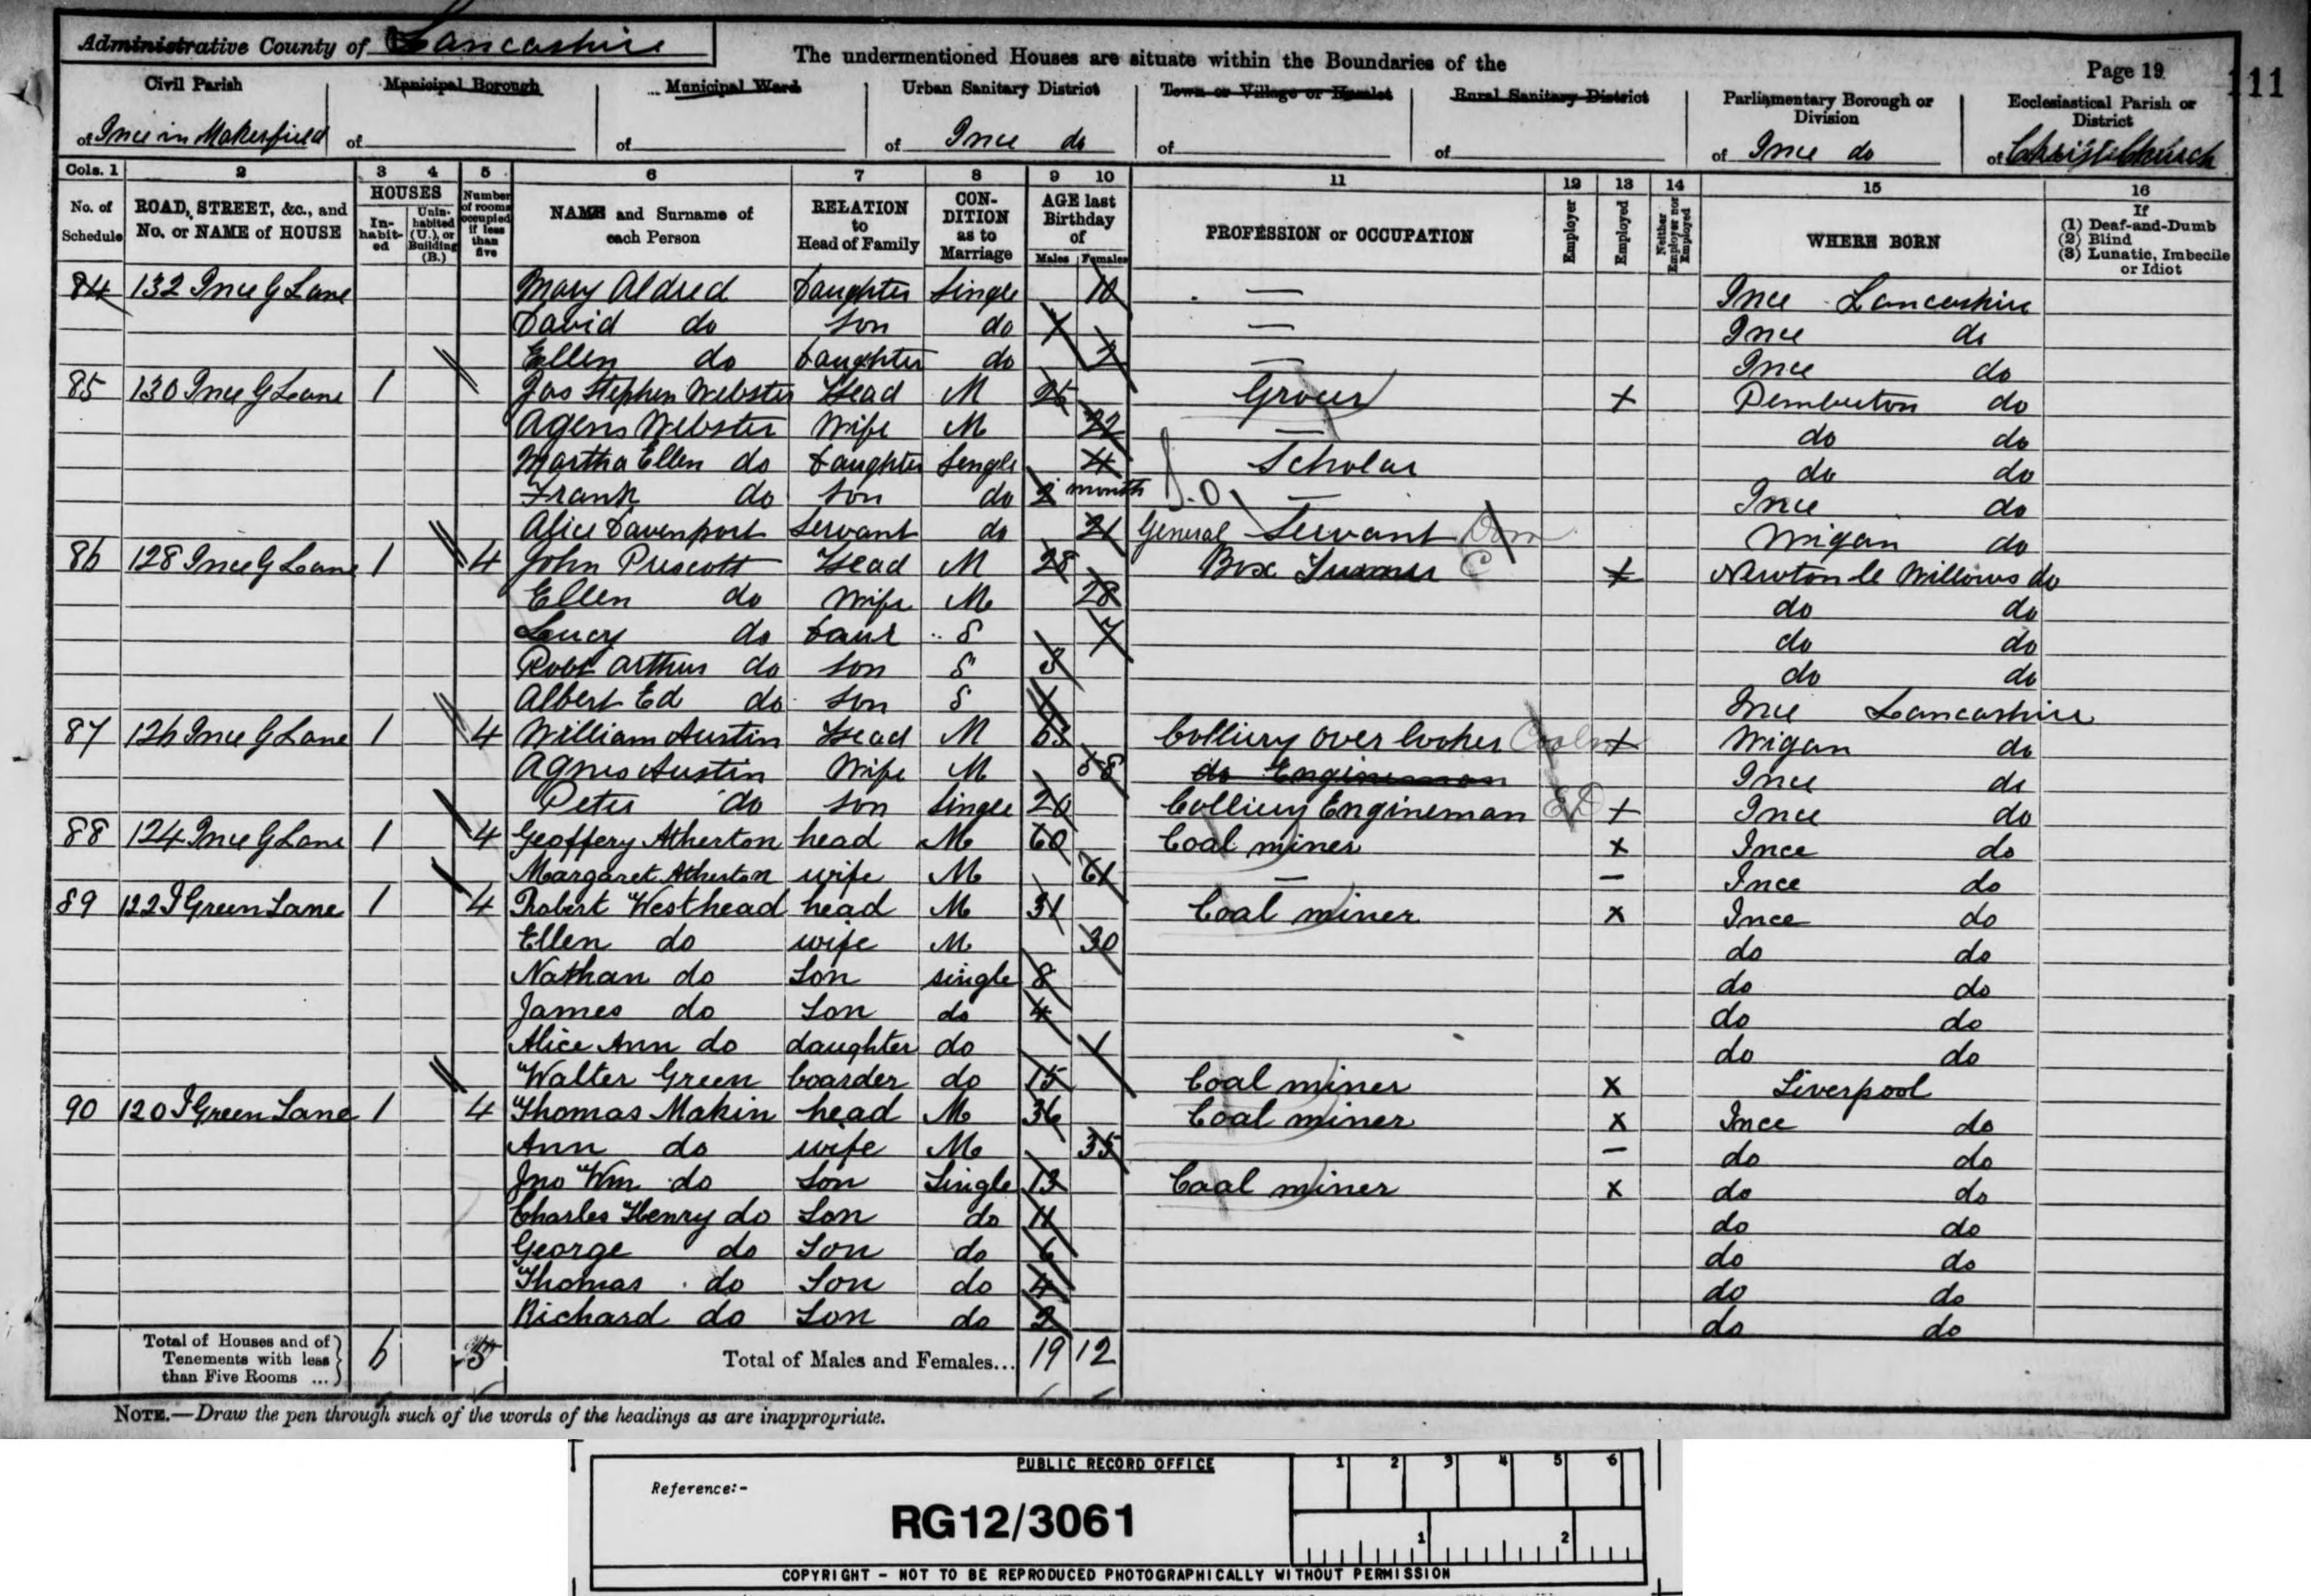 Administrative County of Lancashire
The undermentioned Houses are situate within the Boundaries of the
Page 19
111
Civil Parish of Ince in Makerfield
Municipal Borough of
Municipal Ward of
Urban Sanitary District of Ince do
Town or Village or Hamlet of
Rural Sanitary District of
Parliamentary Borough or Division of Ince do
Ecclesiastical Parish or District of Christ Church
Cols. 1 2 3 4 5 6 7 8 9 10 11 12 13 14 15 16
No. of Schedule
ROAD, STREET, &c., and No. or NAME of HOUSE
HOUSES
In-habit-ed
Unin-habited (U.), or Building (B.)
Number of rooms occupied if less than five
NAME and Surname of each Person
RELATION to Head of Family
CON-DITION as to Marriage
AGE last Birthday of
Males Females
PROFESSION or OCCUPATION
Employer
Employed
Neither Employer nor Employed
WHERE BORN
If (1) Deaf-and-Dumb (2) Blind (3) Lunatic, Imbecile or Idiot
84 132 Ince G Lane Mary Aldred Daughter Single 10 — Ince Lancashire
David do Son do 7 — Ince do
Ellen do Daughter do 2 — Ince do
85 130 Ince G Lane 1 Jas Stephen Webster Head M 25 Grocer + Pemberton do
Agens Webster Wife M 22 — do do
Martha Ellen do Daughter Single 4 Scholar do do
Frank do Son do 2 month — Ince do
Alice Davenport Servant do 21 General Servant Dom Wigan do
86 128 Ince G Lane 1 4 John Prescott Head M 28 Box Turner C + Newton le Willows do
Ellen do Wife M 28 do do
Lucy do Daur S 7 do do
Robt Arthur do Son S 3 do do
Albert Ed do Son S 1 Ince Lancashire
87 126 Ince G Lane 1 4 William Austin Head M 63 Colliery Over looker + Wigan do
Agnes Austin Wife M 58 do Engineman Ince do
Peter do Son Single 20 Colliery Engineman + Ince do
88 124 Ince G Lane 1 4 Geoffery Atherton head M 60 Coal miner x Ince do
Margaret Atherton wife M 61 — – Ince do
89 122 I Green Lane 1 4 Robert Westhead head M 31 Coal miner x Ince do
Ellen do wife M 30 do do
Nathan do Son single 8 do do
James do Son do 4 do do
Alice Ann do daughter do 1 do do
Walter Green boarder do 15 Coal miner x Liverpool
90 120 I Green Lane 1 4 Thomas Makin head M 36 Coal miner x Ince do
Ann do wife M 35 – do do
Jno Wm do Son Single 13 Coal miner x do do
Charles Henry do Son do 11 do do
George do Son do 6 do do
Thomas do Son do 4 do do
Richard do Son do 2 do do
Total of Houses and of Tenements with less than Five Rooms ... 6 5 Total of Males and Females... 19 12
NOTE.—Draw the pen through such of the words of the headings as are inappropriate.
PUBLIC RECORD OFFICE
1 2 3 4 5 6
Reference:-
RG12/3061
1 2
COPYRIGHT - NOT TO BE REPRODUCED PHOTOGRAPHICALLY WITHOUT PERMISSION